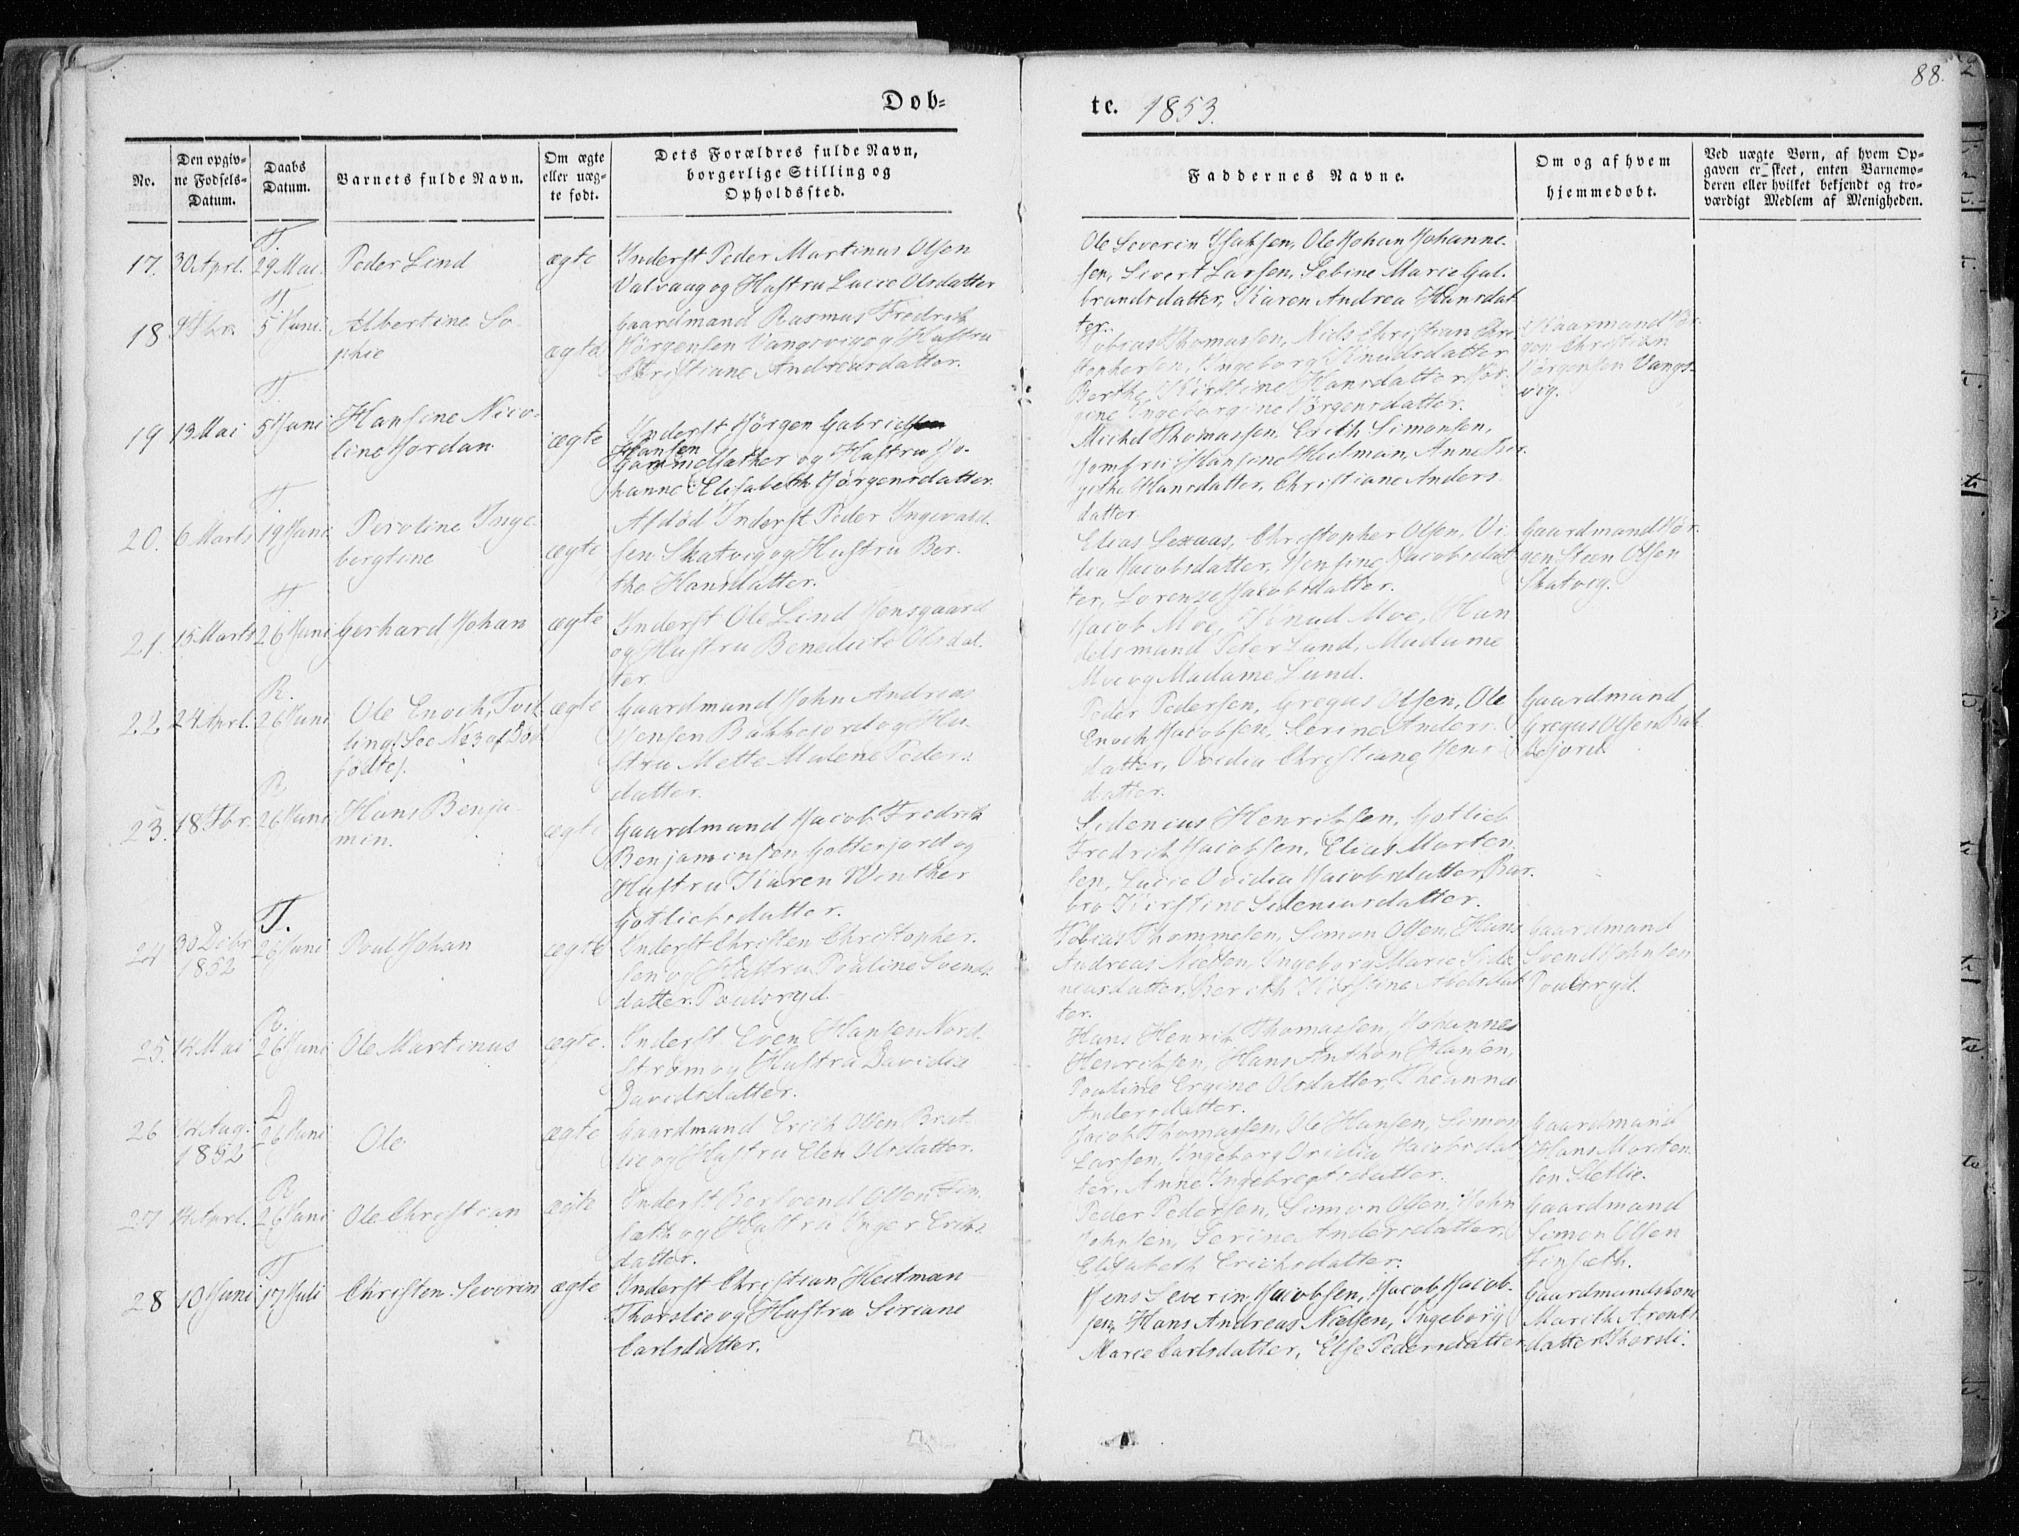 88.
Dob=
te. 1853.
No.
Den opgiv=
ne Fødsels=
Datum.
Daabs
Datum.
Barnets fulde Navn.
Om ægte
eller uæg=
te født.
Dets Forældres fulde Navn,
borgerlige Stilling og
Opholdssted.
Faddernes Navne.
Om og af hvem
hjemmedøbt.
Ved uægte Børn, af hvem Op=
gaven er skeet, enten Barnemo=
deren eller hvilket bekjendt og tro=
værdigt Medlem af Menigheden.
17.
30 Aprl.
T.
29 Mai.
Peder Lind
ægte
Inderst Peder Martinus Olsen
Valvaag og Hustru Lucie Olsdatter
Ole Severin Isaksen, Ole Johan Johanne-
sen, Sivert Larsen, Sebine Marie Gul-
brandsdatter, Karen Andrea Hansdat
ter.
18
9 Fbr.
T.
5 Juni
Albertine So-
phie
ægte
Gaardmand Rasmus Fredrik
Jørgensen Vangsvig og Hustru
Christiane Andreasdatter.
Tobias Thomassen, Niels Christian Chri
stophersen, Ingeborg Knudsdatter
Berthe Kirstine Hansdatter, Jør-
gine Ingeborgine Jørgensdatter.
Gaarmand Jør-
gen Christian
Jørgensen Vangs-
vig.
19
13 Mai
T.
5 Juni
Hansine Nico-
line Jordan
ægte
Inderst Jørgen Gabriel
Hansen
Gammelsæther og Hustru Jo-
hanne Elisabeth Jørgensdatter.
Mickel Thomassen, Erich Simonsen,
Jomfru Hansine Heitman, Anne Bir-
githe Hansdatter, Christiane Anders
datter
20.
6 Marts
T
19 Juni
Peroline Inge-
borgtine
ægte
Afdød Inderst Peder Ingevald-
sen Skatvig og Hustru Ber-
the Hansdatter.
Elias Lexaus, Christopher Olsen, Vi-
dia Jacobsdatter, Jensine Jacobsdat
ter, Lorenze Jacobsdatter.
Gaardmand Jør-
gen Steen Olsen
Skatvig.
21.
15 Marts
T
26 Juni
Gerhard Johan
ægte
Inderst Ole Lind Jensgaard
og Hustru Benedicte Olsdat-
ter.
Jacob Moe, Knud Moe, Han
delsmand Peter Lund, Madame
Moe og Madame Lund.
22
24 Aprl.
R.
26 Juni
Ole Enoch, Tvil
ling (See No 3 af Død
fødte).
ægte
Gaardmand John Andreas
Jensen Bakkejord og Hu-
stru Mette Malene Peders-
datter.
Peder Pedersen, Gregus Olsen, Ole
Enoch Jacobsen, Serine Anders-
datter, Ovidia Christiane Jens-
datter.
Gaardmand
Gregus Olsen Bak
kejord.
23.
18 Fbr.
R
26 Juni
Hans Benja-
min.
ægte
Gaardmand Jacob Fredrik
Benjaminsen Gotterjord og
Hustru Karen Winther
Gotliebsdatter.
Sidenius Henriksen, Gotlieb
Fredrik Jacobsen, Elias Morten-
sen, Lucie Ovidia Jacobsdatter, Bar-
bro Kirstine Sideniusdatter.
24
30 Debr
1852
T.
26 Juni
Poul Johan
ægte
Inderst Christen Christopher-
sen og Hustru Pauline Svends
datter. Poulsryd.
Tobias Thommesen, Simon Olsen, Hans
Andreas Nielsen, Ingeborg Marie Side-
niusdatter, Berith Kirstine Abelsdat
ter.
Gaardmand
Svend Johnsen
Poulsryd.
25.
12 Mai
R.
26 Juni
Ole Martinus
ægte.
Inderst Even Hansen Nord-
strøm og Hustru Davidia
Davidsdatter.
Hans Henrik Thomassen, Johannes
Henriksen, Hans Anthon Hansen,
Pauline Ergine Olsdatter, Theanna
Andersdatter.
26
12 Aug.
1852
D
26 Juni
Ole
ægte
Gaardmand Erich Olsen Brat-
lie og Hustru Elen Olsdatter.
Jacob Thomassen, Ole Hansen, Simon
Larsen, Ingeborg Ovidia Jacobsdat
ter, Anne Ingebregtsdatter.
Gaardmand
Hans Morten-
sen Sletlie.
27
14 Aprl.
R.
26 Juni
Ole Christian
ægte
Inderst Bersvend Olsen Fin-
sæth og Hustru Inger Erichs-
datter.
Peder Pedersen, Simon Olsen, John
Johnsen, Serine Andersdatter,
Elisabeth Erichsdatter.
Gaardmand
Simon Olsen
Finsæth.
28
10 Juni
T
17 Juli
Christen Severin
ægte
Inderst Christian Heitman
Thorslie og Hustru Siriane
Carlsdatter.
Jens Severin Jacobsen, Jacob Jacob-
sen, Hans Andreas Nielsen, Ingeborg
Marie Carlsdatter, Else Pedersdatter
Gaardmandskone
Marith Arents
datter Thorsli.